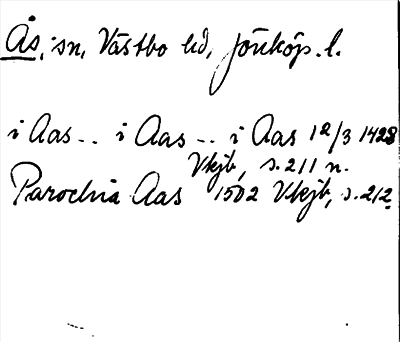 Ås, sn, Västbo hd, Jönköp. l.
i Aas -- i Aas -- i Aas 12/3 1428
Vkjb, s. 211 n.
Parochia Aas 1502 Vkjb, s. 212